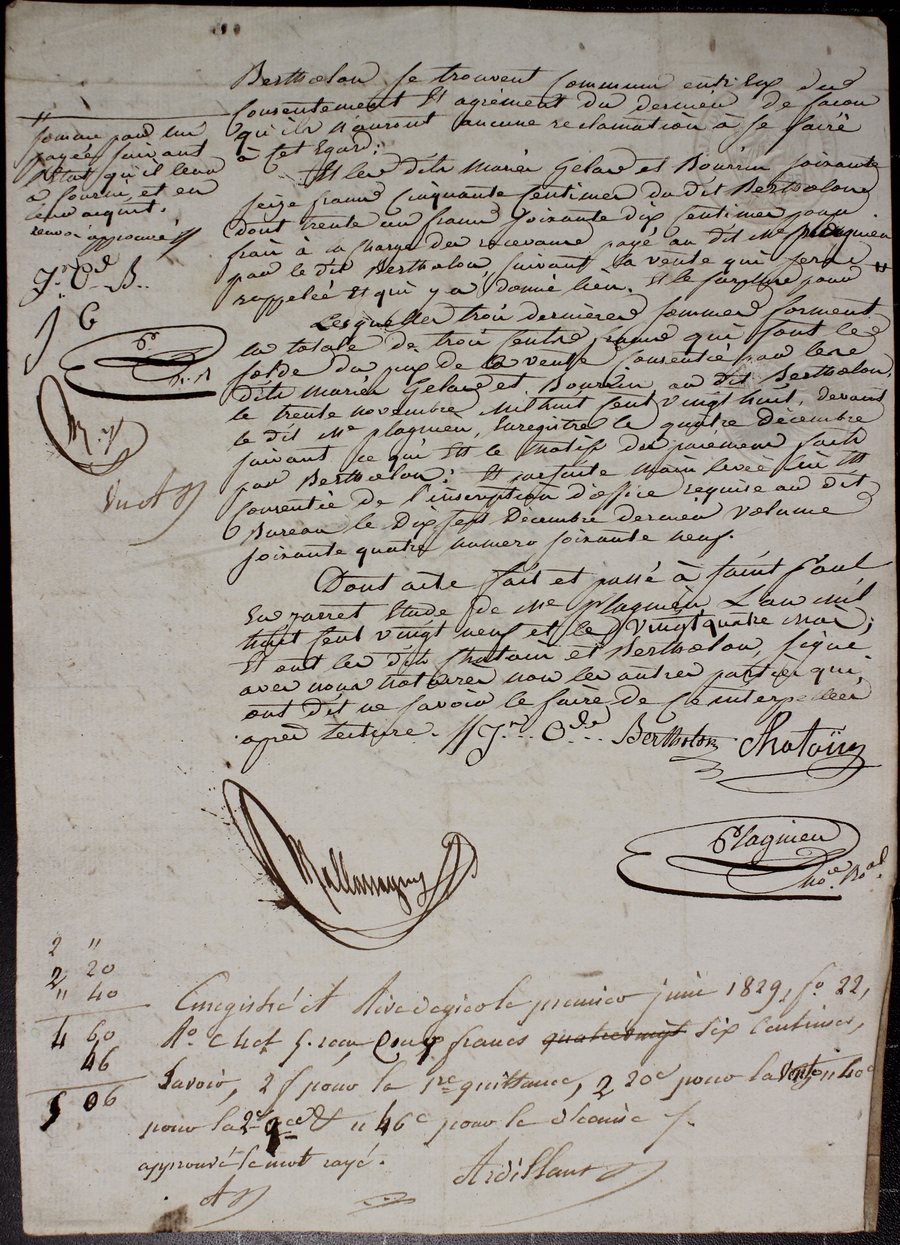 Bertholon se trouvent commun entr'eux du
consentement et agrément du dernier de facon
qu'ils n'auront aucune reclamation à se faire
à cet egard;
Et les dits mariés Gelas et Bourrin soixante
seize francs cinquante centimes du dit Bertholon
dont trente un francs soixante dix centimes pour
frais à sa charge des recevans payé au dit Me plagnieu
par le dit Bertholon, suivant la vente qui sera
rappelée et qui y a donné lieu. Et le surplus pour "
Lesquelles trois dernieres sommes forment
la totale de trois cents francs qui font le
solde du prix de la vente consentie par les
dits mariés Gelas et Bourrin au dit Bertholon,
le trente novembre mil huit cent vingt huit, devant
le dit Me plagnieu, enregistré le quatre décembre
suivant ce qui est le motif du paiement fait
par Bertholon; Et parfaite main levée lui est
consentie de l'inscription d'office requise au dit
Bureau le Dix sept Décembre dernier volume
soixante quatre numero soixante neuf.
Dont acte fait et passé à saint Paul
En Jarret Etude de Me Plagnieu L'an mil
huit cent vingt neuf et le vingt quatre mai;
Et ont les dits Chatain et Bertholon, signé
avec nous notaires non les autres parties qui
ont dit ne savoir le faire de ce interpellées
après lecture. // Jn. Ode Bertholon Chatain
Plagnieu
Nore Roal
"
somme pour lui
payée suivant
état qu'il leur
a fourni et en
leur acquit.
renvoi approuvé //
Jn. Od. B..
J C
P
N. R
M. J
2 "
2 20
" 40
4 60
46
5 06
Enregistré à Rive de gier le premier juin 1829, fo. 22,
Ro. c 4 et 5. reçu cinq francs quatre vingt six centimes,
savoir, 2 f pour la 1re quittance, 2 20c pour la vente " 40c
pour la 2e qce & " 46c pour le décime /.
approuvé le mot rayé.
Ardillant
A